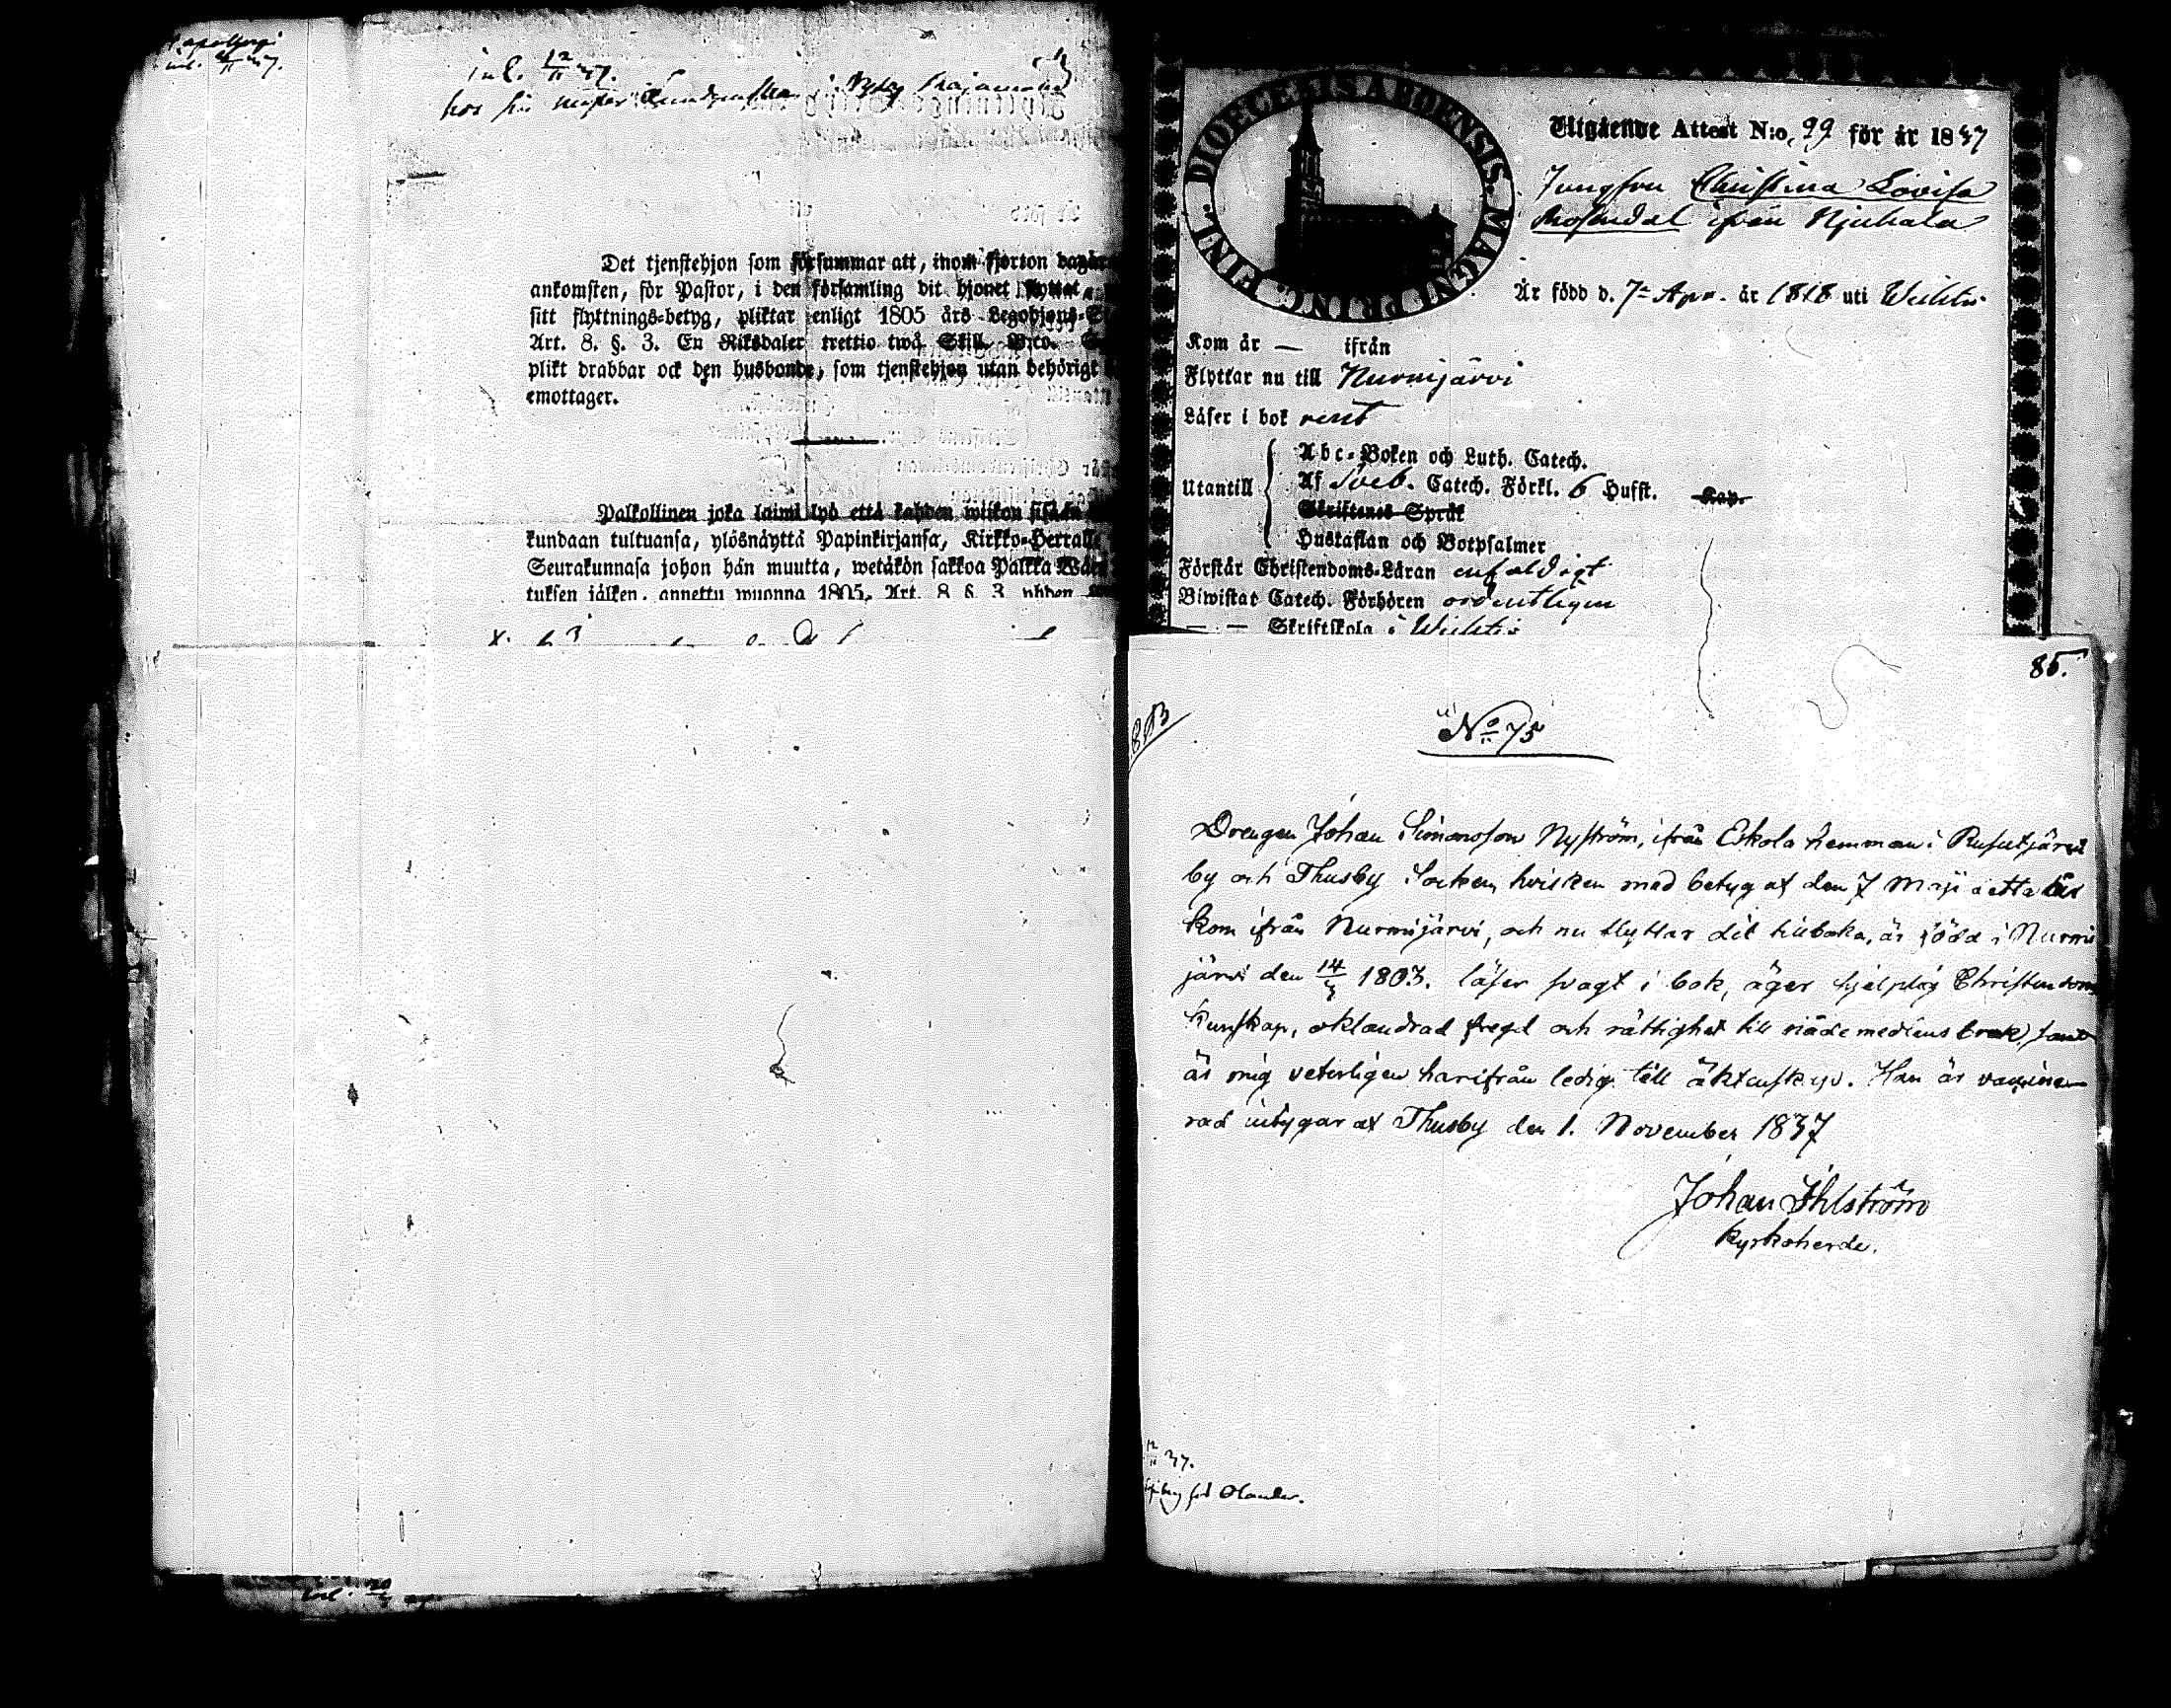 inl. 12/11 37.
hos sin
Det tjenstehjon som försummar att, inom fjorton dagar
ankomsten, för Pastor, i den församling dit hjonet flyttat,
sitt flyttnings-betyg, pliktar enligt 1805 års Legohjons-S
Art. 8. §. 3. En Riksdaler trettio två Skill. B:co.
plikt drabbar ock den husbonde, som tjenstehjon utan behörigt
emottager.
Palkollinen joka laimi lyö että kahden wiikon sisään
kundaan tultuansa, ylösnäyttä Papinkirjansa, Kirkko-Herralle
Seurakunnasa johon hän muutta, wetäkön sakkoa Palkka Wäen
tuksen jälken, annettu wuonna 1805, Art. 8 §. 3 yhden
DIOECESIS ABOENSIS. MAGNI PRINC. FINL.
Utgående Attest N:o 99 för år 1837
Jungfru Christina Lovisa
Rosendal ifrån Njuhala
Är född d. 7de Apr. år 1818 uti Wichtis
Kom år — ifrån
Flyttar nu till Nurmijärvi
Läser i bok rent
Utantill
Abc-Boken och Luth. Catech.
Af Sveb. Catech. Förkl. 6 Hufst. Kap.
Skriftenes Språk
Hustaflan och Botpsalmer
Förstår Christendoms-Läran enfaldigt
Biwistat Catech. Förhören ordentligen
— — Skriftskola i Wichtis
85.
No 75
Drengen Johan Simonsson Nyström, ifrån Eskola hemman i Rusutjärvi
by och Thusby Socken, hvilken med betyg af den 7 Maji detta år
kom ifrån Nurmijärvi, och nu flyttar dit tillbaka, är född i Nurmi
järvi den 14/3 1803. läser svagt i bok, äger hjelplig Christendoms
kunskap, oklandrad fregd och rättighet till nådemedlens bruk, samt
är mig veterligen härifrån ledig till äktenskap. Han är vaccine-
rad intygar af Thusby den 1. November 1837
Johan Ihlström
Kyrkoherde.
12/11 37.
Olander.